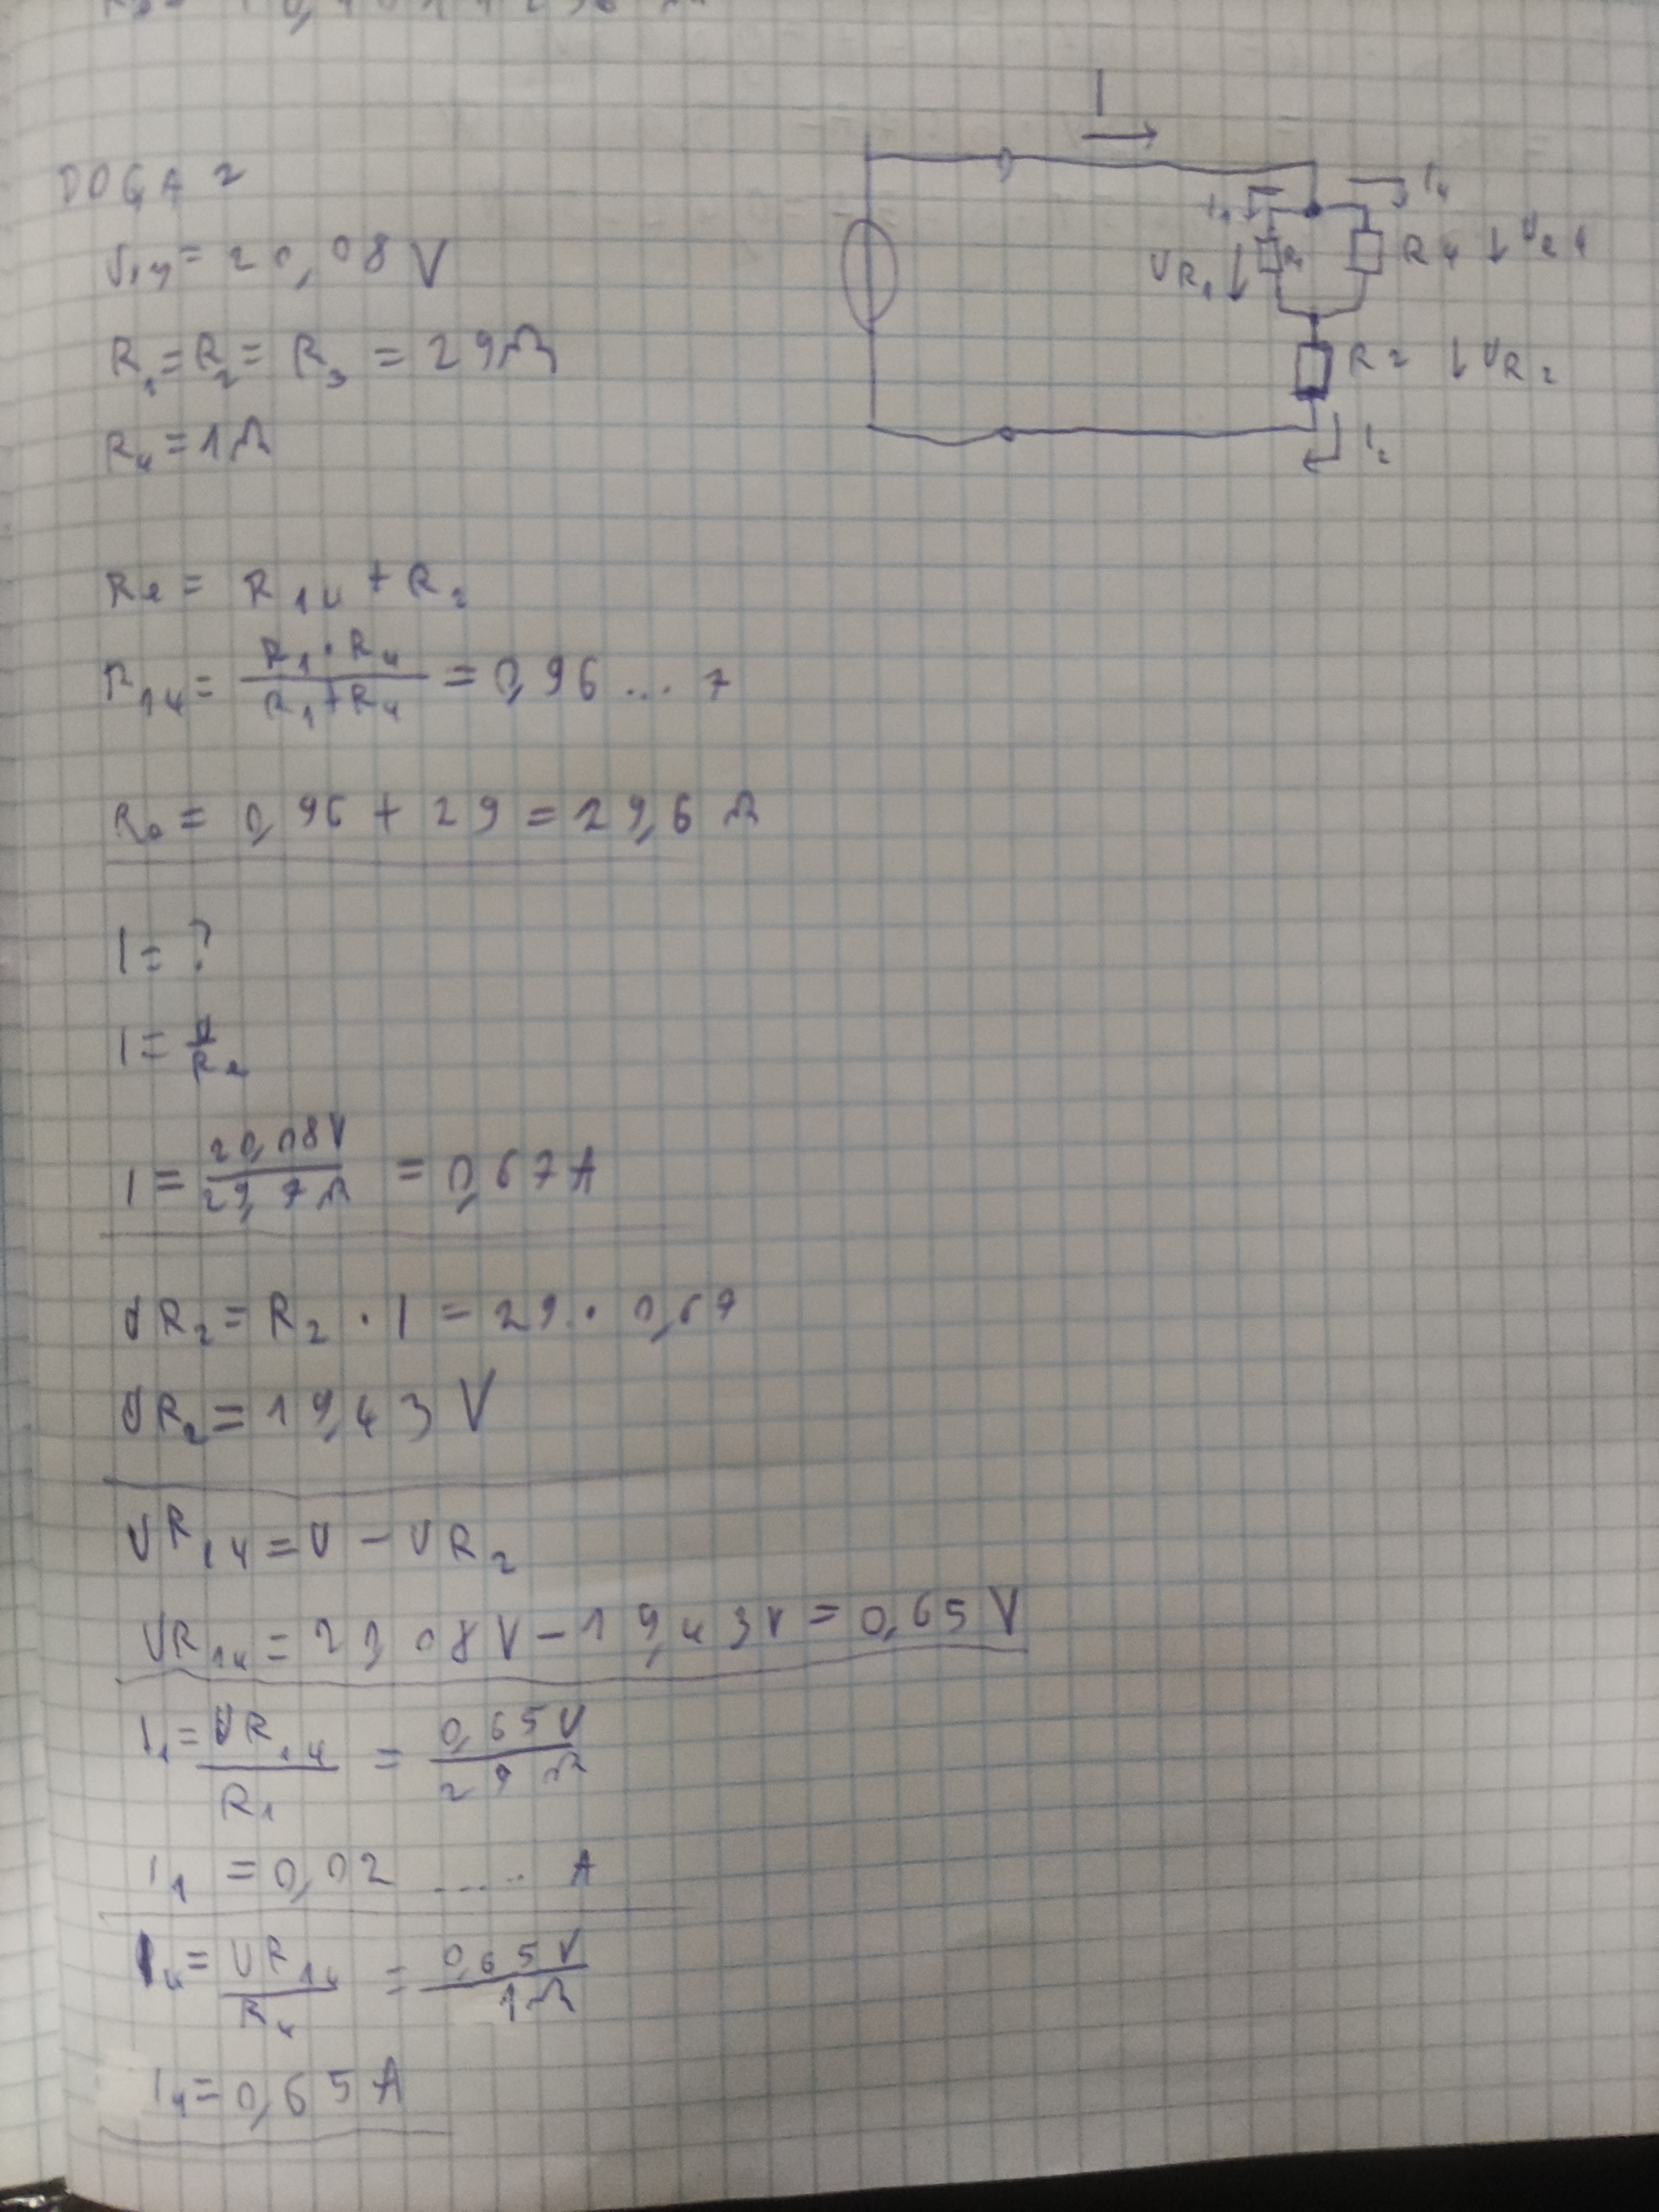 DOGA 2
U14 = 20,08 V
R1 = R2 = R3 = 29Ω
R4 = 1Ω
I
I1
I4
UR1
R1
R4
UR4
R2
UR2
I2
Re = R14 + R2
R14 = R1 · R4 / R1 + R4 = 0,96 ... 7
Re = 0,96 + 29 = 29,6 Ω
I = ?
I = U / Re
I = 20,08V / 29,7Ω = 0,67A
UR2 = R2 · I = 29 · 0,67
UR2 = 19,43 V
UR14 = U - UR2
UR14 = 20,08V - 19,43V = 0,65 V
I1 = UR14 / R1 = 0,65V / 29Ω
I1 = 0,02 ..... A
I4 = UR14 / R4 = 0,65V / 1Ω
I4 = 0,65 A